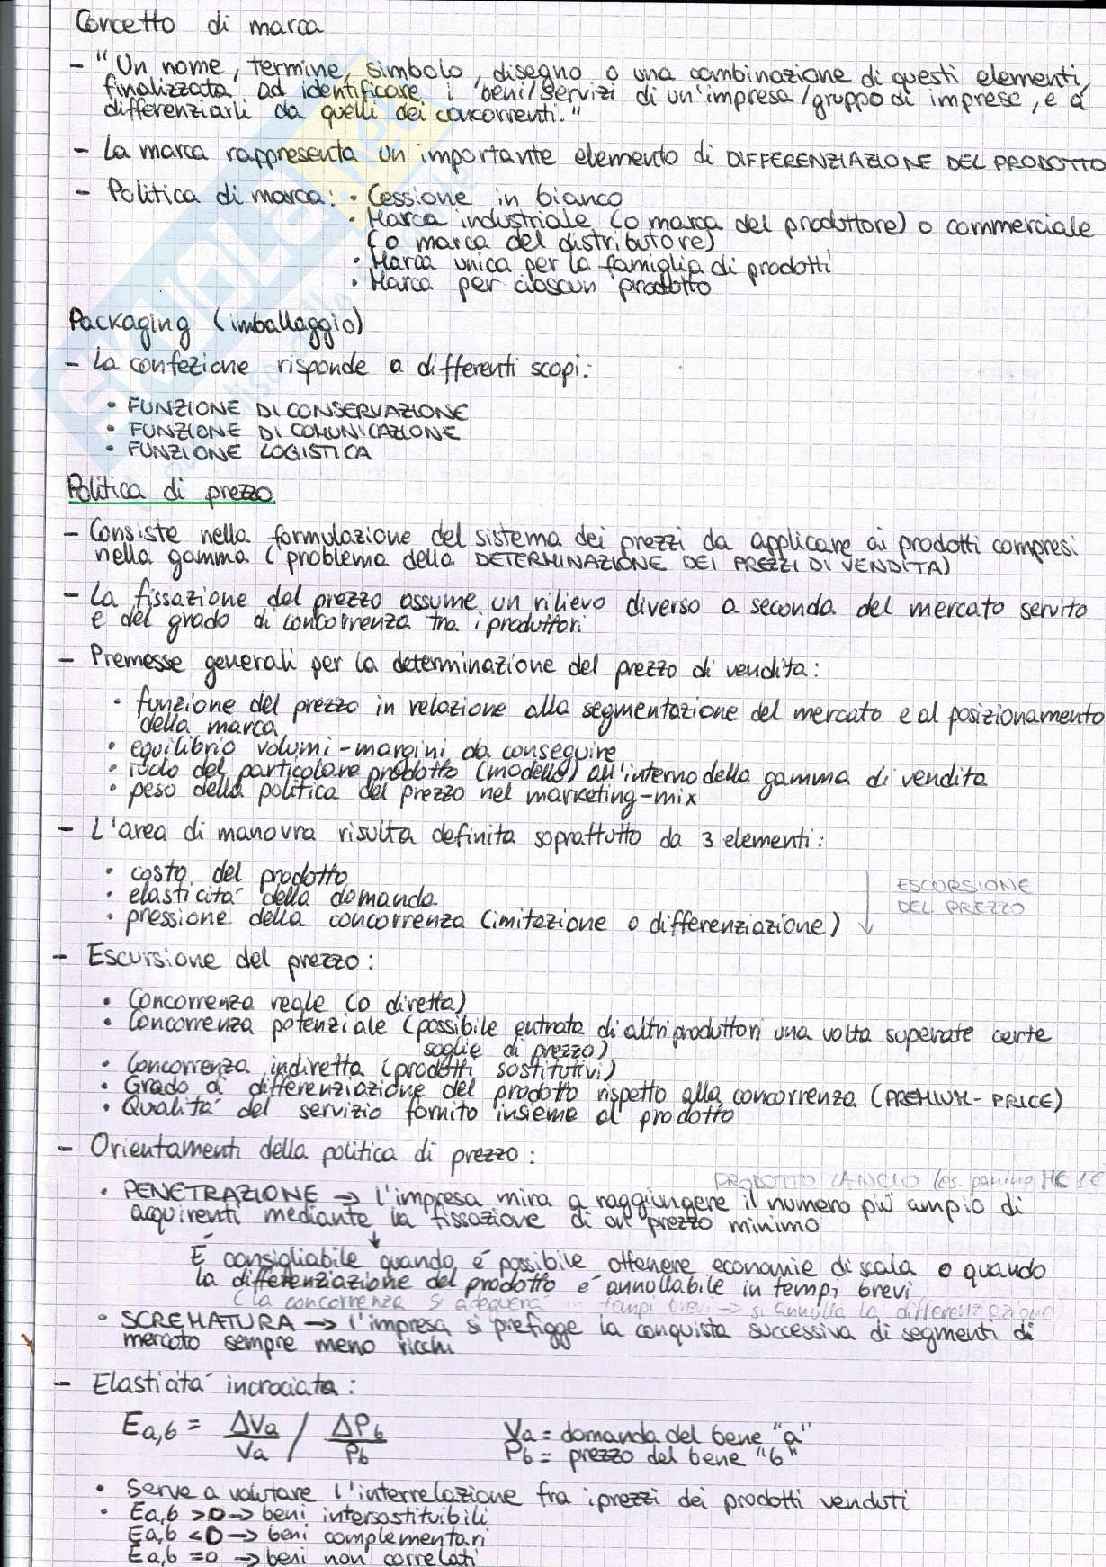 Concetto di marca
- "Un nome, termine, simbolo, disegno o una combinazione di questi elementi,
finalizzata ad identificare i beni/servizi di un'impresa/gruppo di imprese, e a
differenziarli da quelli dei concorrenti."
- La marca rappresenta un importante elemento di DIFFERENZIAZIONE DEL PRODOTTO
- Politica di marca: • Cessione in bianco
• Marca industriale (o marca del produttore) o commerciale
(o marca del distributore)
• Marca unica per la famiglia di prodotti
• Marca per ciascun prodotto
Packaging (imballaggio)
- La confezione risponde a differenti scopi:
• FUNZIONE DI CONSERVAZIONE
• FUNZIONE DI COMUNICAZIONE
• FUNZIONE LOGISTICA
Politica di prezzo
- Consiste nella formulazione del sistema dei prezzi da applicare ai prodotti compresi
nella gamma (problema della DETERMINAZIONE DEI PREZZI DI VENDITA)
- La fissazione del prezzo assume un rilievo diverso a seconda del mercato servito
e del grado di concorrenza tra i produttori
- Premesse generali per la determinazione del prezzo di vendita:
• funzione del prezzo in relazione alla segmentazione del mercato e al posizionamento
della marca
• equilibrio volumi-margini da conseguire
• ruolo del particolare prodotto (modello) all'interno della gamma di vendita
• peso della politica del prezzo nel marketing-mix
- L'area di manovra risulta definita soprattutto da 3 elementi:
• costo del prodotto
• elasticità della domanda
• pressione della concorrenza (imitazione o differenziazione)
ESCURSIONE
DEL PREZZO
- Escursione del prezzo:
• Concorrenza reale (o diretta)
• Concorrenza potenziale (possibile entrata di altri produttori una volta superate certe
soglie di prezzo)
• Concorrenza indiretta (prodotti sostitutivi)
• Grado di differenziazione del prodotto rispetto alla concorrenza (PREMIUM-PRICE)
• Qualità del servizio fornito insieme al prodotto
- Orientamenti della politica di prezzo:
PRODOTTO
• PENETRAZIONE → l'impresa mira a raggiungere il numero più ampio di
acquirenti mediante la fissazione di un prezzo minimo
↓
È consigliabile quando è possibile ottenere economie di scala o quando
la differenziazione del prodotto è annullabile in tempi brevi
(la concorrenza si adeguerà in tempi brevi → si annulla la differenziazione)
• SCREMATURA → l'impresa si prefigge la conquista successiva di segmenti di
mercato sempre meno ricchi
- Elasticità incrociata:
Ea,b = ΔVa/Va / ΔPb/Pb
Va = domanda del bene "a"
Pb = prezzo del bene "b"
• Serve a valutare l'interrelazione fra i prezzi dei prodotti venduti
• Ea,b >0 → beni intersostituibili
Ea,b <0 → beni complementari
Ea,b =0 → beni non correlati